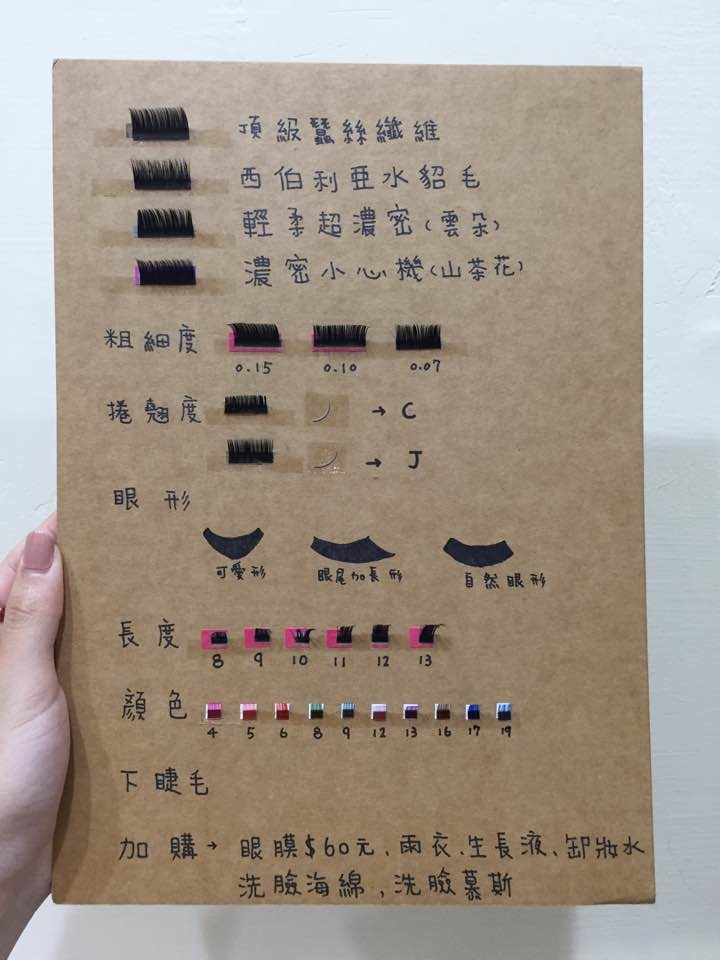 頂級蠶絲纖維
西伯利亞水貂毛
輕柔超濃密(雲朵)
濃密小心機(山茶花)
粗細度
0.15 0.10 0.07
捲翹度 → C
→ J
眼形
可愛形 眼尾加長形 自然眼形
長度
8 9 10 11 12 13
顏色
4 5 6 8 9 12 13 16 17 19
下睫毛
加購→ 眼膜$60元、雨衣、生長液、卸妝水
洗臉海綿,洗臉慕斯